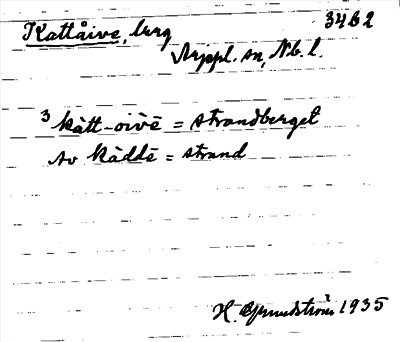 Kattåive, berg 3462
Arjepl. sn, Nb. l.
3 kàtt-oivē = strandberget
Av kàddē = strand
H. Grundström 1935